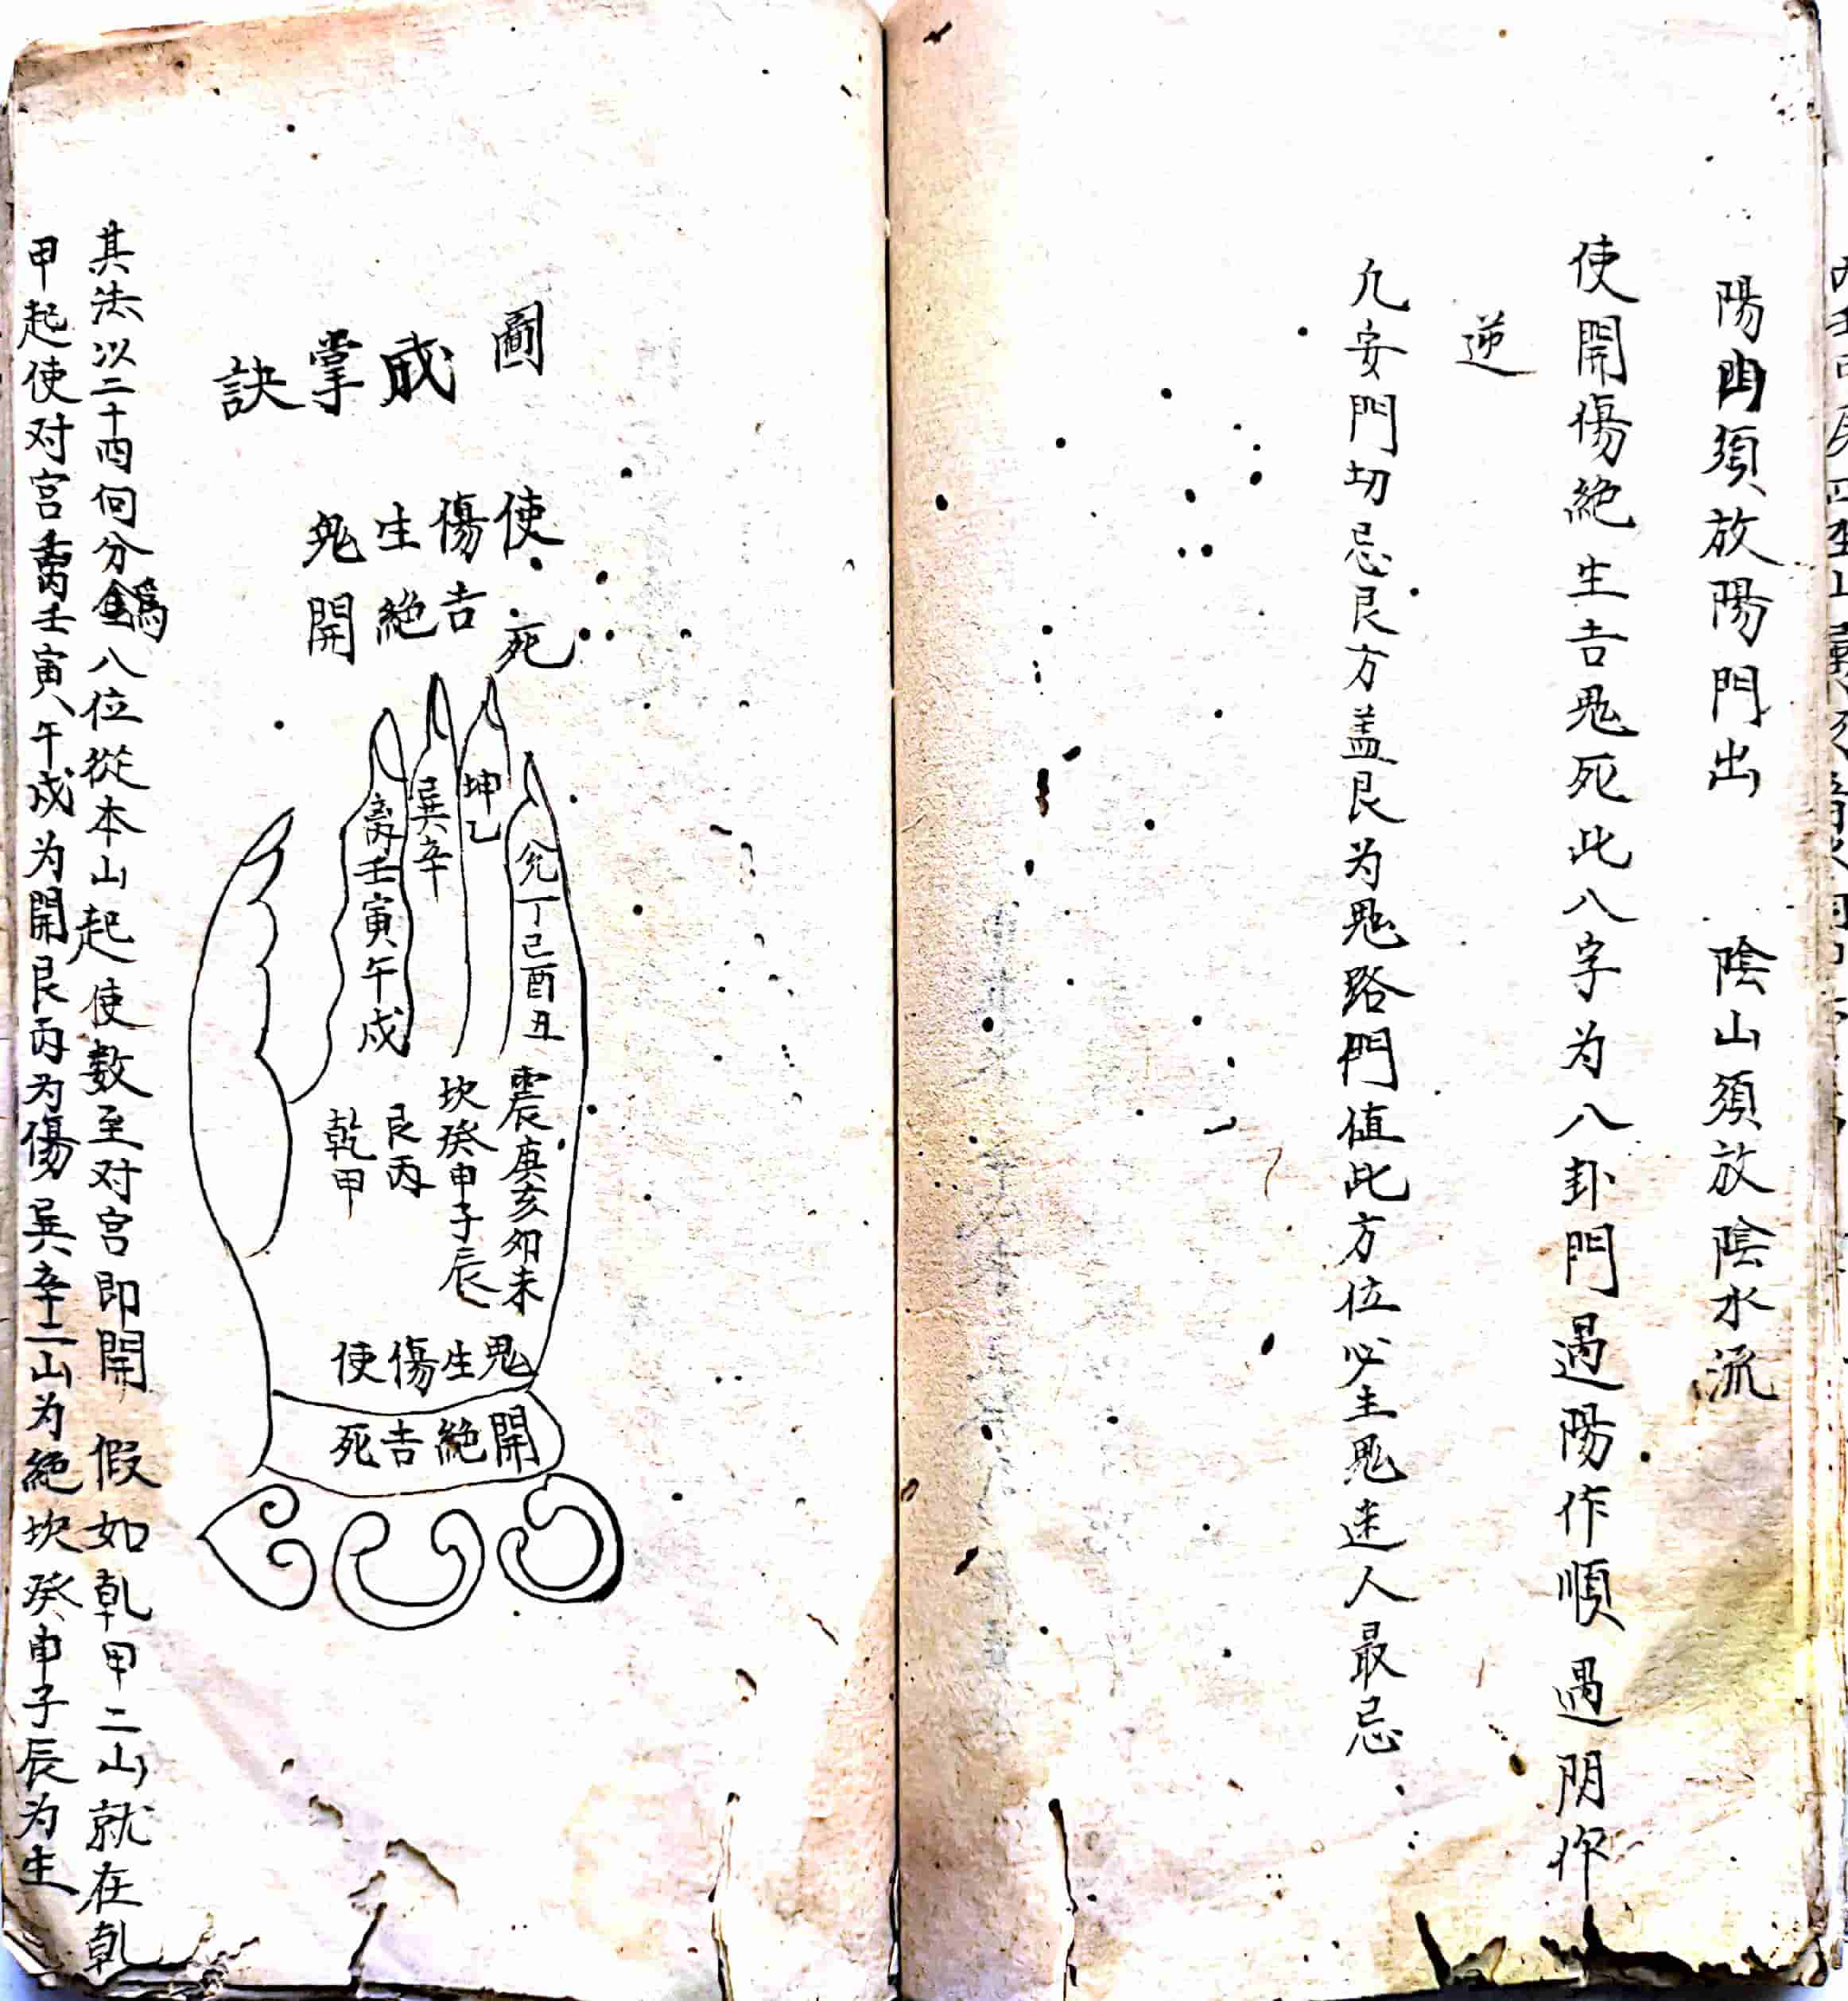 陽山須放陽門出　陰山須放陰水流
使開傷絕生吉鬼死此八字为八卦門遇陽作順遇阴作
逆
凢安門切忌艮方盖艮为鬼路門值此方位必主鬼迷人最忌
圖
成
掌
訣
使傷生鬼
死吉絕開
兊丁己酉丑
坤乙
巽辛
离壬寅午戌
震庚亥卯未
坎癸申子辰
艮丙
乾甲
鬼生傷使
開絕吉死
其法以二十四向分為八位從本山起使数至对宫即開　假如乾甲二山就在乾
甲起使对宫离壬寅午戌为開艮丙为傷巽辛二山为絕坎癸申子辰为生